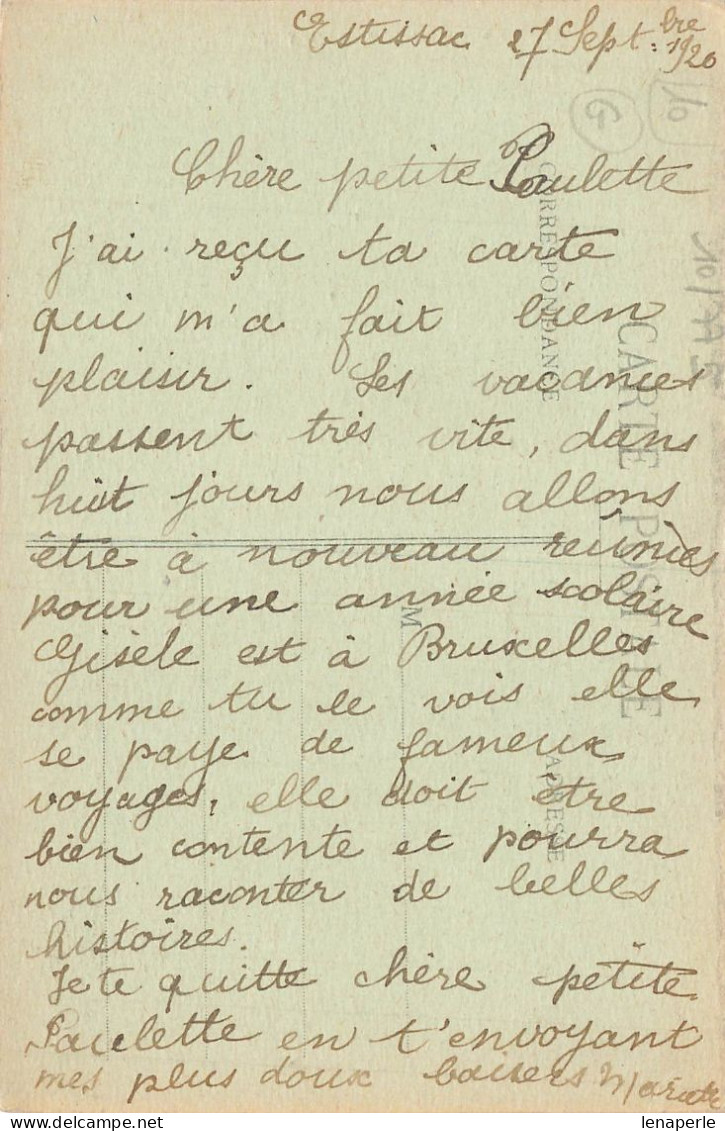 Estissac 27 Sept.bre 1920
Chère petite Paulette
J'ai reçu ta carte
qui m'a fait bien
plaisir. Les vacances
passent très vite, dans
huit jours nous allons
être à nouveau réunies
pour une année scolaire
Gisèle est à Bruxelles
comme tu le vois elle
se paye de fameux
voyages, elle doit être
bien contente et pourra
nous raconter de belles
histoires.
Je te quitte chère petite
Paulette en t'envoyant
mes plus doux baisers
CARTE POSTALE
CORRESPONDANCE
M
ADRESSE
10
G
lenaperle